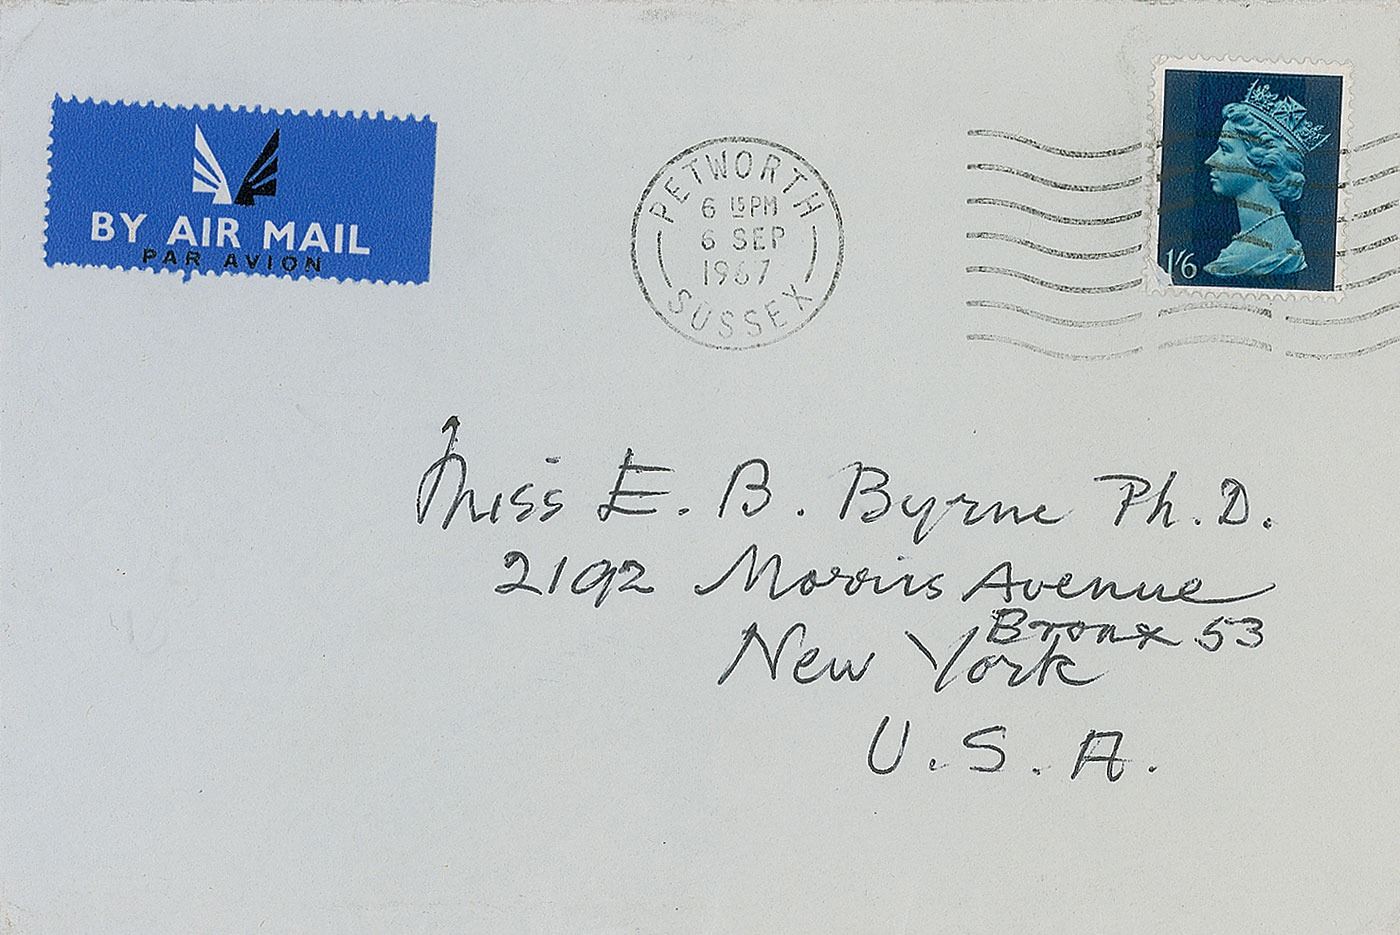 BY AIR MAIL
PAR AVION
PETWORTH
6 15 PM
6 SEP
1967
SUSSEX
1/6
Miss E. B. Byrne Ph. D.
2192 Morris Avenue
Bronx 53
New York
U. S. A.